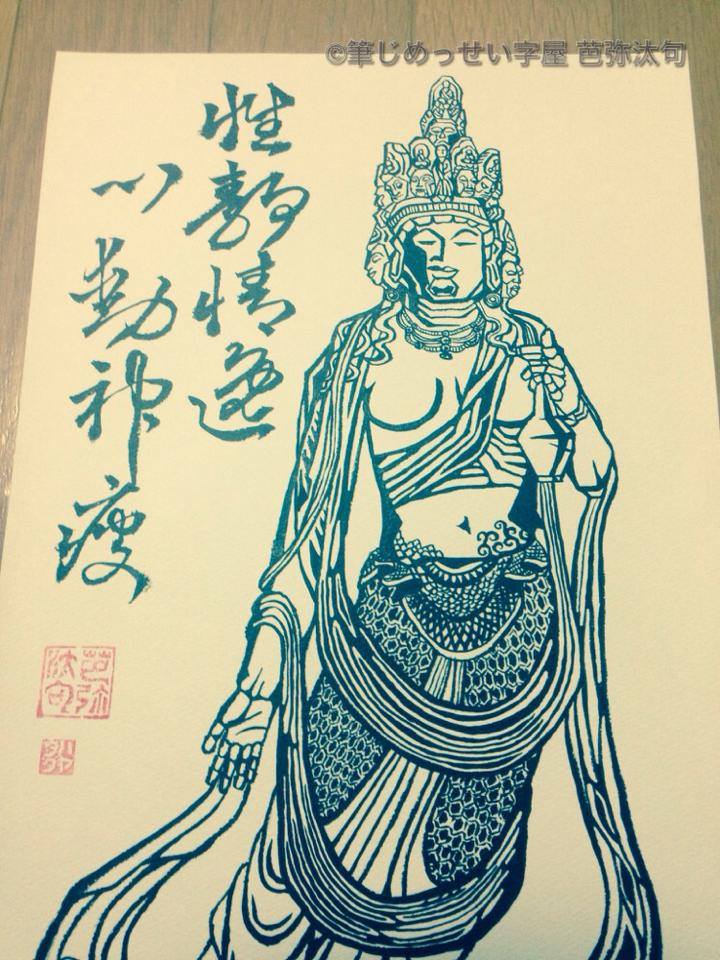 ©筆じめっせい字屋 芭弥汰句
性静情逸
心動神疲
芭弥
汰句